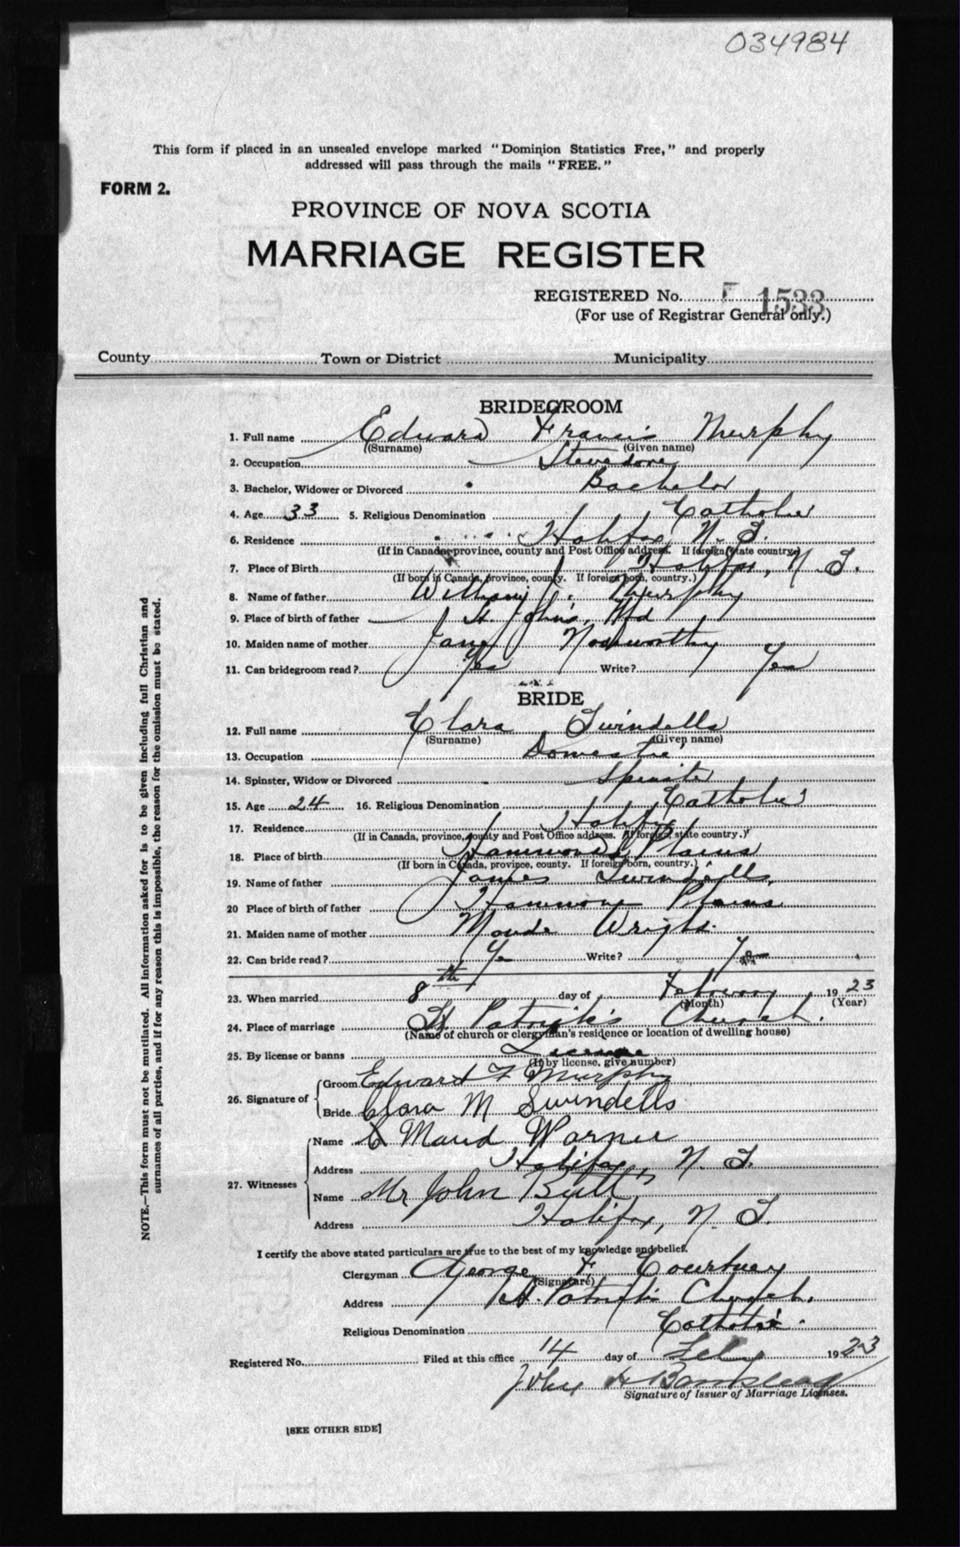 034984
This form if placed in an unsealed envelope marked "Dominion Statistics Free," and properly
addressed will pass through the mails "FREE."
FORM 2.
PROVINCE OF NOVA SCOTIA
MARRIAGE REGISTER
REGISTERED No. F 1533
(For use of Registrar General only.)
County Town or District Municipality
BRIDEGROOM
1. Full name Edward Francis Murphy
(Surname) (Given name)
2. Occupation Stevedore
3. Bachelor, Widower or Divorced Bachelor
4. Age 33 5. Religious Denomination Catholic
6. Residence Halifax, N. S.
(If in Canada, province, county and Post Office address. If foreign, state country.)
7. Place of Birth Halifax, N. S.
(If born in Canada, province, county. If foreign born, country.)
8. Name of father William J. Murphy
9. Place of birth of father St. John's, Nfd
10. Maiden name of mother Jane Nosworthy
11. Can bridegroom read? Yes Write? Yes
BRIDE
12. Full name Clara Swindells
(Surname) (Given name)
13. Occupation Domestic
14. Spinster, Widow or Divorced Spinster
15. Age 24 16. Religious Denomination Catholic
17. Residence Halifax
(If in Canada, province, county and Post Office address. If foreign, state country.)
18. Place of birth Hammonds Plains
(If born in Canada, province, county. If foreign born, country.)
19. Name of father James Swindells
20 Place of birth of father Hammond Plains
21. Maiden name of mother Maude Wright
22. Can bride read? Yes Write? Yes
23. When married 8th day of February 1923
(Month) (Year)
24. Place of marriage St Patrick's Church.
(Name of church or clergyman's residence or location of dwelling house)
25. By license or banns License
(If by license, give number)
26. Signature of Groom Edward F Murphy
Bride Clara M Swindells
27. Witnesses
Name Maud Warner
Address Halifax, N. S.
Name Mr John Butt
Address Halifax, N. S.
I certify the above stated particulars are true to the best of my knowledge and belief.
Clergyman George F Courtney
(Signature)
Address St. Patrick's Church.
Religious Denomination Catholic.
Registered No. Filed at this office 14 day of Feby 1923
John
Signature of Issuer of Marriage Licenses.
[SEE OTHER SIDE]
NOTE.—This form must not be mutilated. All information asked for is to be given including full Christian and
surnames of all parties, and if for any reason this is impossible, the reason for the omission must be stated.